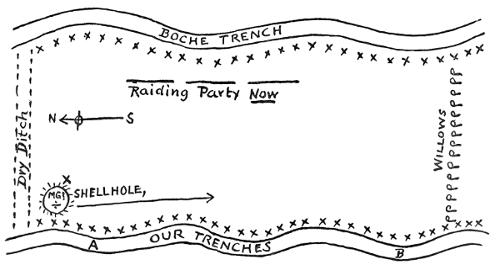 BOCHE TRENCH
Raiding Party Now
N S
Dry Ditch
WILLOWS
MG!
SHELLHOLE,
A OUR TRENCHES B